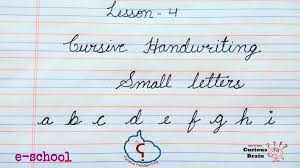 Lesson-4
Cursive Handwriting
Small letters
a b c d e f g h i
e-school
Curious
Brain